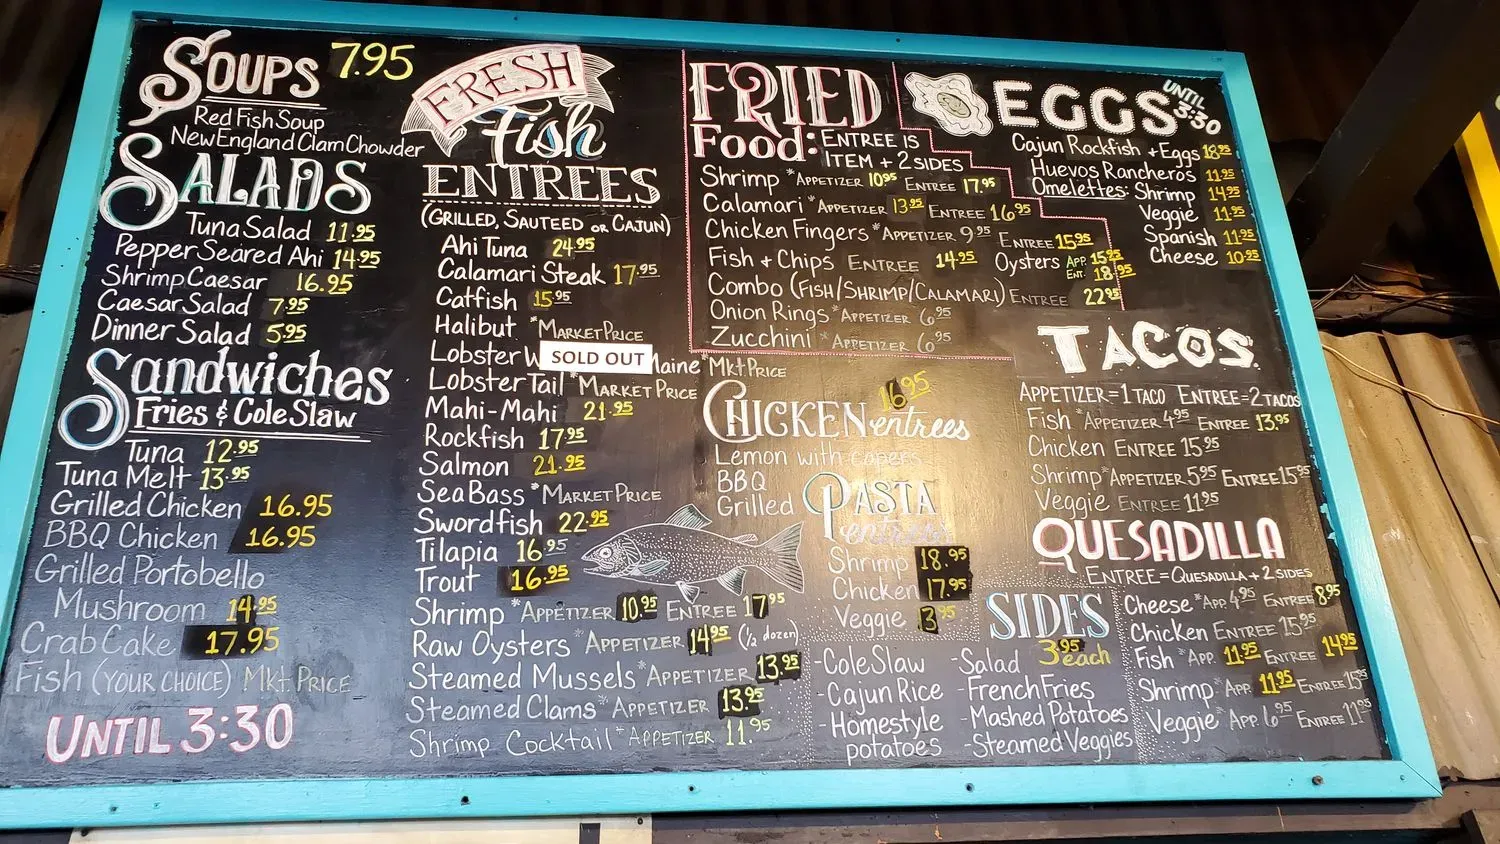 SOUPS 7.95
Red Fish Soup
New England Clam Chowder
SALADS
Tuna Salad 11.95
Pepper Seared Ahi 14.95
Shrimp Caesar 16.95
Caesar Salad 7.95
Dinner Salad 5.95
Sandwiches
Fries & Cole Slaw
Tuna 12.95
Tuna Melt 13.95
Grilled Chicken 16.95
BBQ Chicken 16.95
Grilled Portobello
Mushroom 14.95
Crab Cake 17.95
Fish (YOUR CHOICE) Mkt. PRICE
UNTIL 3:30
FRESH
Fish
ENTREES
(GRILLED, SAUTEED OR CAJUN)
Ahi Tuna 24.95
Calamari Steak 17.95
Catfish 15.95
Halibut *MARKET PRICE
Lobster W SOLD OUT Maine *Mkt PRICE
Lobster Tail *MARKET PRICE
Mahi-Mahi 21.95
Rockfish 17.95
Salmon 21.95
Sea Bass *MARKET PRICE
Swordfish 22.95
Tilapia 16.95
Trout 16.95
Shrimp *APPETIZER 10.95 ENTREE 17.95
Raw Oysters *APPETIZER 14.95 (1/2 dozen)
Steamed Mussels *APPETIZER 13.95
Steamed Clams *APPETIZER 13.95
Shrimp Cocktail *APPETIZER 11.95
FRIED
Food: ENTREE IS
ITEM + 2 SIDES
Shrimp *APPETIZER 10.95 ENTREE 17.95
Calamari *APPETIZER 13.95 ENTREE 16.95
Chicken Fingers *APPETIZER 9.95 ENTREE 15.95
Fish + Chips ENTREE 14.95
Oysters APP. 15.95
ENT. 18.95
Combo (FISH/SHRIMP/CALAMARI) ENTREE 22.95
Onion Rings *APPETIZER 6.95
Zucchini *APPETIZER 6.95
CHICKEN entrees 16.95
Lemon with capers
BBQ
Grilled
PASTA
entrees
Shrimp 18.95
Chicken 17.95
Veggie 13.95
SIDES
3.95 each
-Cole Slaw
-Cajun Rice
-Homestyle
potatoes
-Salad
-French Fries
-Mashed Potatoes
-Steamed Veggies
EGGS UNTIL 3:30
Cajun Rockfish + Eggs 18.95
Huevos Rancheros 11.95
Omelettes: Shrimp 14.95
Veggie 11.95
Spanish 11.95
Cheese 10.95
TACOS
APPETIZER=1 TACO ENTREE=2 TACOS
Fish *APPETIZER 4.95 ENTREE 13.95
Chicken ENTREE 15.95
Shrimp *APPETIZER 5.95 ENTREE 15.95
Veggie ENTREE 11.95
QUESADILLA
ENTREE=QUESADILLA + 2 SIDES
Cheese *APP. 4.95 ENTREE 8.95
Chicken ENTREE 15.95
Fish *APP. 11.95 ENTREE 14.95
Shrimp *APP. 11.95 ENTREE 15.95
Veggie *APP. 6.95 ENTREE 11.95